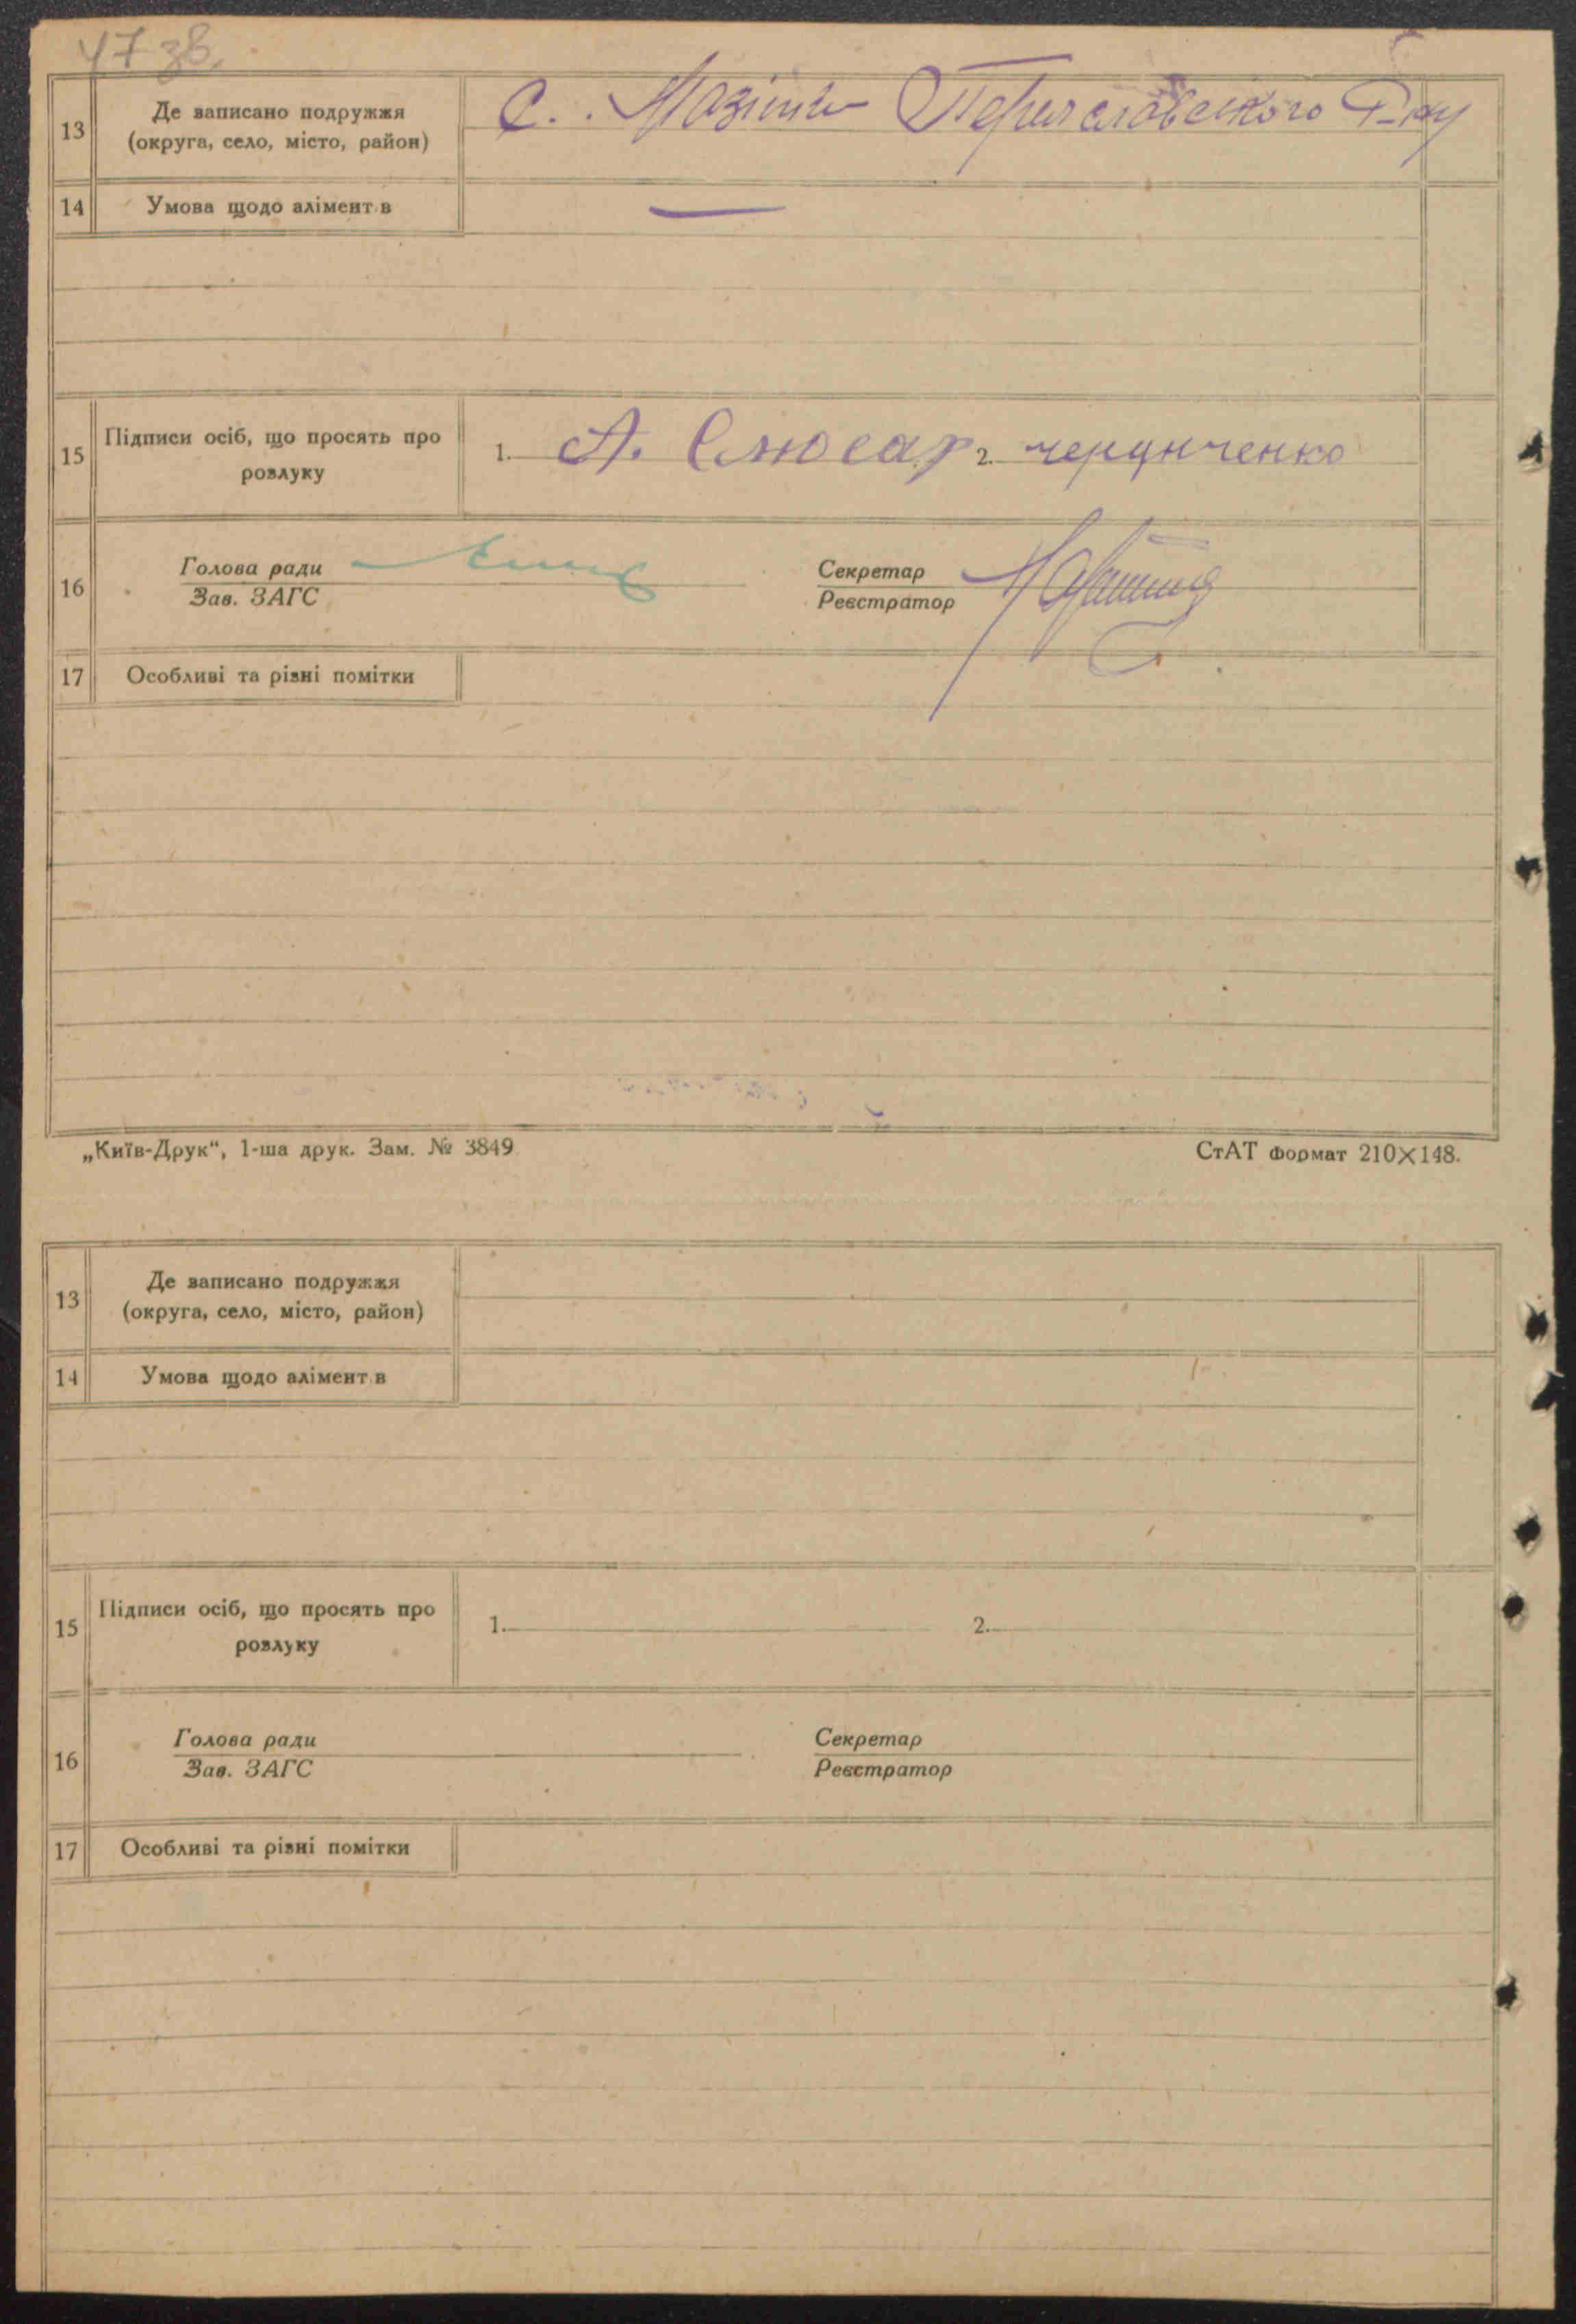 47 зв.
13 Де записано подружжя (округа, село, місто, район) С. Мазінки Переяславського р-ну
14 Умова щодо алімент в —
15 Підписи осіб, що просять про розлуку 1. А. Слюсар 2. Чередниченко
16 Голова ради Зав. ЗАГС Секретар Реєстратор
17 Особливі та різні помітки
„Київ-Друк“, 1-ша друк. Зам. № 3849 СтАТ формат 210×148.
13 Де записано подружжя (округа, село, місто, район)
14 Умова щодо алімент в
15 Підписи осіб, що просять про розлуку 1. 2.
16 Голова ради Зав. ЗАГС Секретар Реєстратор
17 Особливі та різні помітки